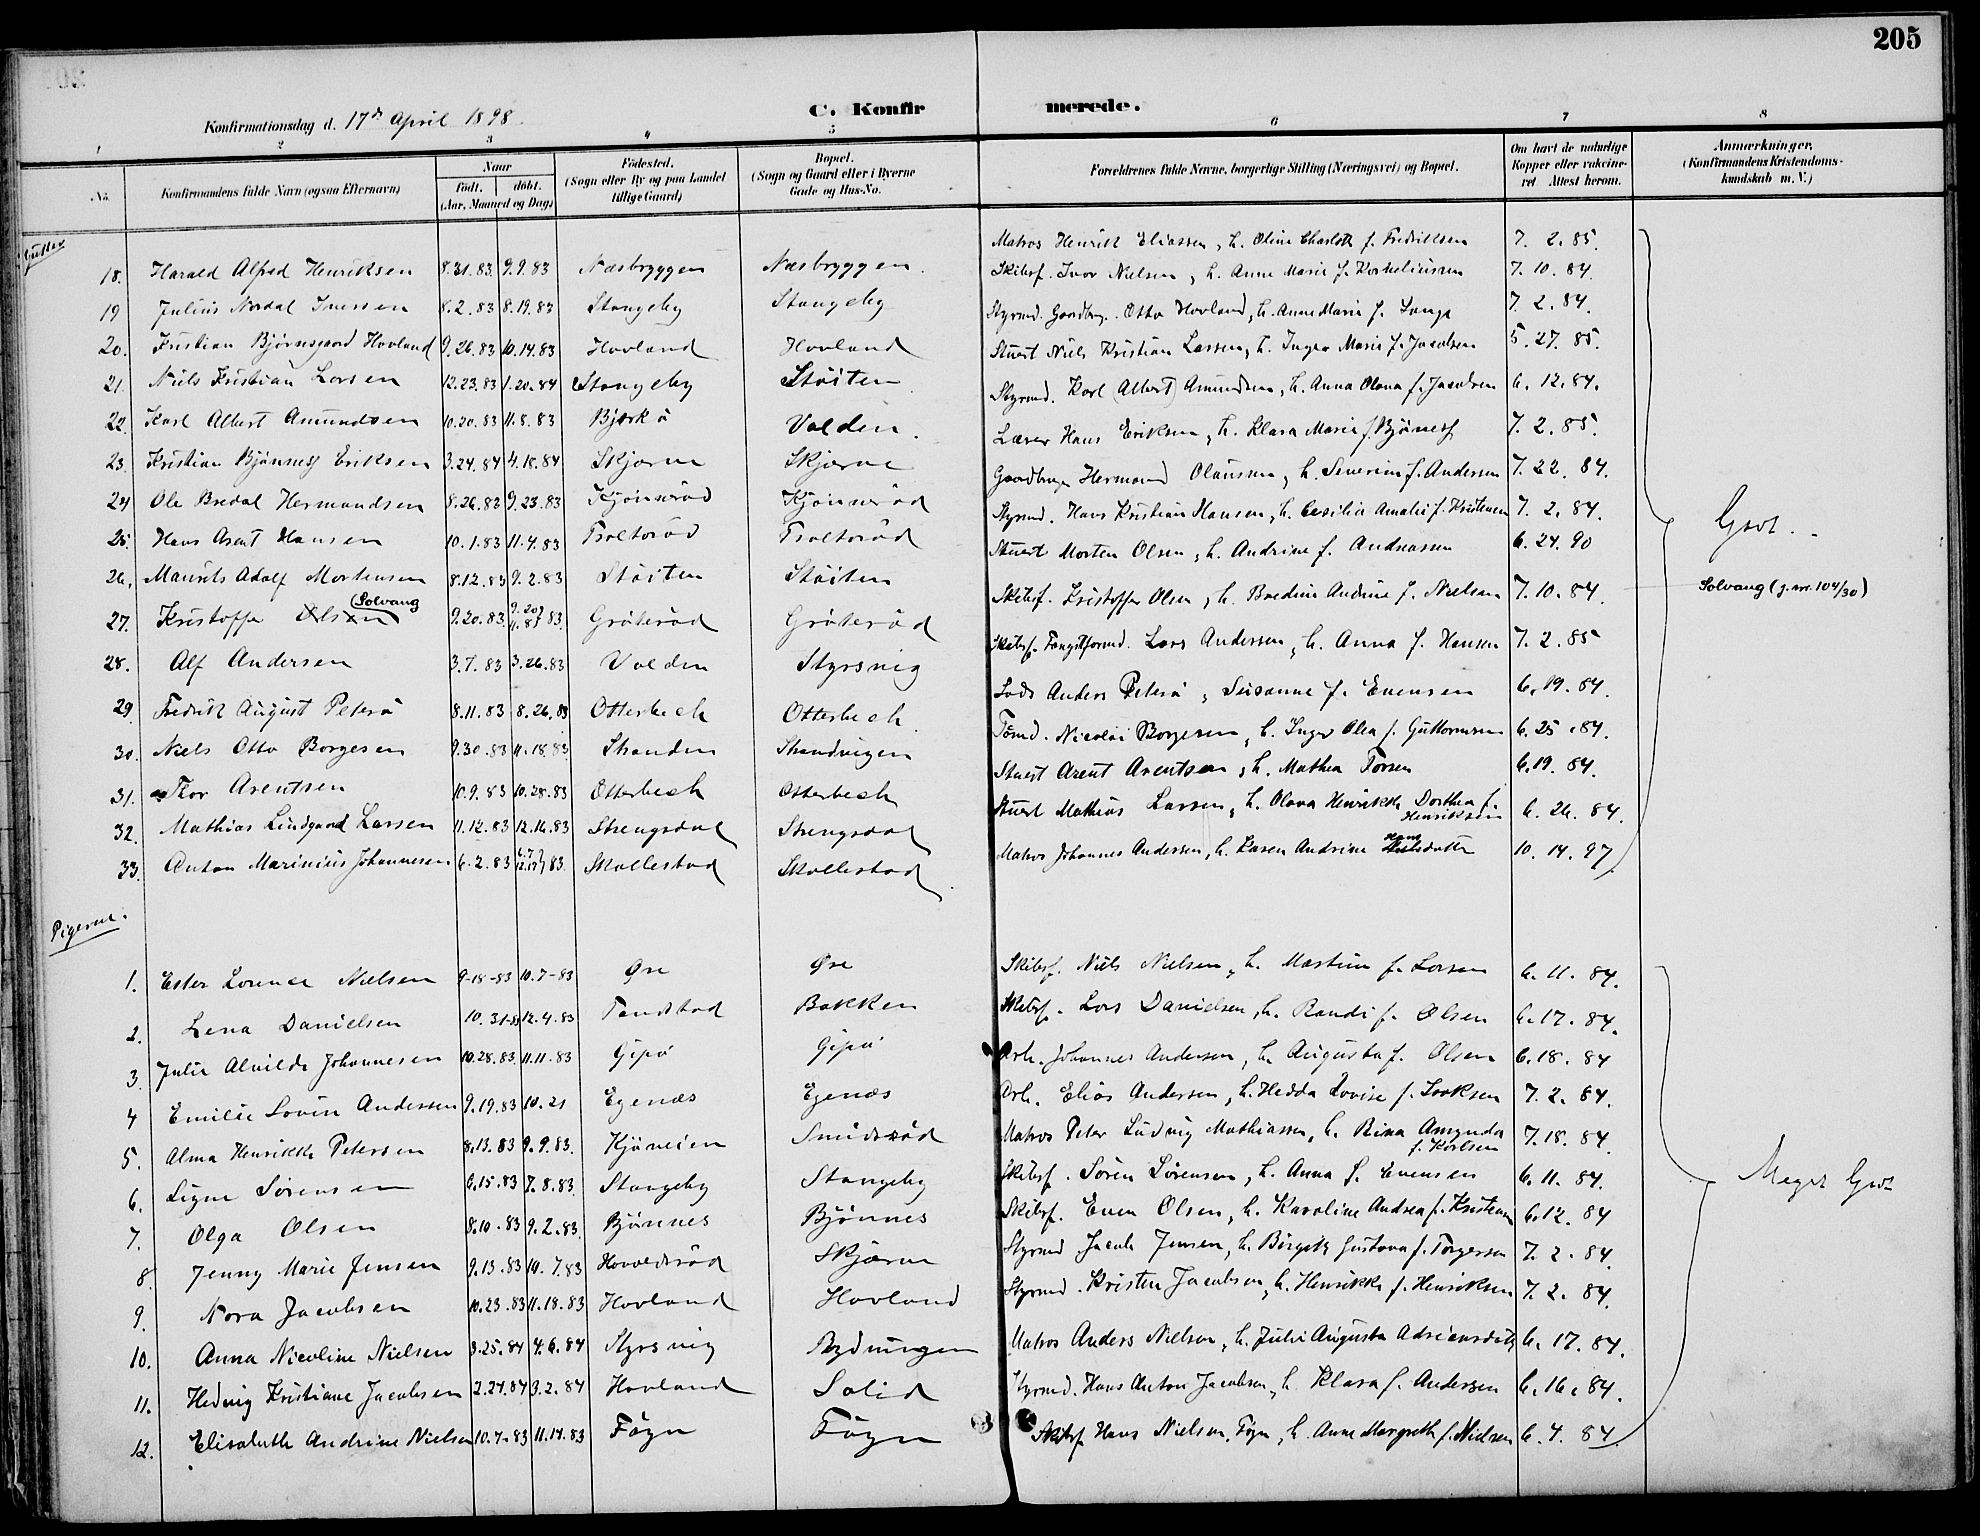 205
C. Konfirmerede.
Konfirmationsdag d. 17de April 1898.
1 2 3 4 5 6 7 8
No. Konfirmandens fulde Navn (ogsaa Efternavn) Naar født. døbt. (Aar, Maaned og Dag) Fødested. (Sogn eller By og paa Landet tillige Gaard) Bopæl. (Sogn og Gaard eller i Byerne Gade og Hus-No. Forældrenes fulde Navne, borgerlige Stilling (Næringsvei) og Bopæl. Om havt de naturlige Kopper eller vakcineret Attest herom. Anmærkninger, (Konfirmandens Kristendomskundskab m. V.)
Gutter
18. Harald Alfred Henriksen 8.31.83 9.9.83 Næsbryggen Næsbryggen. Matros Henrik Eliassen, h. Oline Charlotte f. Fredriksen 7. 2. 85.
19 Julius Nordal Iversen 8.2.83 8.19.83 Stangeby Stangeby Skibsf. Ivar Nielsen, h. Anne Marie f. Korneliussen 7. 10. 84.
20. Kristian Bjørnsgaard Hovland 9.26.83 10.14.83 Hovland Hovland Styrmd. Gaardbrg. Otto Hovland, h. Anne Marie f. Lange 7. 2. 84.
21. Niels Kristian Larsen 12.23.83 1.20.84 Stangeby Støiten Stuert Niels Kristian Larsen, h. Inger Marie f. Jacobsen 5. 27. 85.
22. Karl Albert Amundsen 10.20.83 11.8.83 Bjerkø Valden. Styrmd. Karl (Albert) Amundsen, h. Anna Olava f. Jacobsen 6. 12. 84.
23. Kristian Bjønness Eriksen 3.24.84 4.18.84 Skjærne Skjærne Lærer Hans Eriksen, h. Klara Marie f. Bjønness 7. 2. 85.
24 Ole Bredal Hermandsen 8.26.83 9.23.83 Kjønnerød Kjønnerød Gaardbruger Hermand Olaussen, h. Severine f. Andersen 7. 22. 84.
25. Hans Arent Hansen 10.1.83 11.4.83 Troltorød Troltorød Styrmd. Hans Kristian Hansen, h. Cecilie Amalie f. Kristensen 7. 2. 84.
26. Maurits Adolf Mortensen 8.12.83 9.2.83 Støiten Støiten Stuert Morten Olsen, h. Andrine f. Andreassen 6. 24. 90
27. Kristoffer Olsen (Solvang 9.20.83 9.20 11.8 83 Grøterød Grøterød Skibsf. Kristoffer Olsen, h. Bredine Andrine f. Nielsen 7. 10. 84. Solvang (j.nr. 104/30)
28. Alf Andersen 3.7.83 3.26.83 Valden Styrsvig Skibsf. Fangstformd. Lars Andersen, h. Anna f. Hansen 7. 2. 85
29. Fredrik August Peterø 8.11.83 8.26.83 Otterbech Otterbech Lods Anders Peterø, Susanne f. Evensen 6. 19. 84.
30. Niels Otto Borgesen 9.30.83 11.18.83 Stranden Strandvigen Tømd. Nicolai Borgesen, h. Inger Olea f. Guttormsen 6. 25. 84.
31. Thor Arentsen 10.9.83 10.28.83 Otterbech Otterbech Stuert Arent Arentsen, h. Mathea Torsen 6. 19. 84.
32. Mathias Lindgaard Larsen 11.12.83 12.16.83 Strengsdal Strengsdal Stuert Mathias Larsen, h. Olava Henrikke Dorthea f. Henriksen 6. 26. 84.
33. Anton Marinius Johannesen 6.2.83 83 Skallestad Skallestad Matros Johannes Andersen, h. Karen Andrine Hansdatter 10. 14. 97.
Godt.
Pigerne.
1. Ester Lorence Nielsen 9-18-83 10.7-83 Øre Øre Skibsf. Niels Nielsen, h. Martine f. Larsen 6. 11. 84.
2. Lena Danielsen 10.31.83 12.4.83 Tandstad Bakken Skibsf. Lars Danielsen, h. Randi f. Olsen 6. 17. 84.
3. Julie Alvilde Johannesen 10.28.83 11.11.83 Gipø Gipø Arb. Johannes Andersen, h. Augusta f. Olsen 6. 18. 84
4 Emilie Lovise Andersen 9.19.83 10.21 Egenæs Egenæs Arb. Elias Andersen, h. Hedda Lovise f. Isaksen 7. 2. 84.
5. Alma Henrikke Petersen 8.13.83 9.9.83. Kjøneien Smidsrød Matros Peter Ludvig Mathiassen, h. Rina Amanda f. Karlsen 7. 18. 84.
6. Signe Sørensen 6.15.83 7.8.83 Stangeby Stangeby Skibsf. Søren Sørensen, h. Anna f. Evensen 6. 11. 84.
7. Olga Olsen 8.10.83 9.2.83. Bjønnes Bjønnes Skibsf. Even Olsen, h. Karoline Andrea f. Kristensen 6. 12. 84
8. Jenny Marie Jensen 9.13.83 10.7.83 Hovvedsrød Skjærne Styrmd Jacob Jensen, h. Birgitte Gustava f. Torgersen 7. 2. 84.
9. Nora Jacobsen 10.23.83 11.18.83 Hovland Hovland Styrmd. Kristen Jacobsen, h. Henrikke f. Henriksen 7. 2. 84.
10. Anna Nicoline Nielsen 3.25.84 4.6.84 Styrsvig Rydningen Matros Anders Nielsen, h. Julie Augusta Adriansdatter 6. 17. 84.
11. Hedvig Kristiane Jacobsen 2.24.84 3.2.84 Hovland Solid Styrmd. Hans Anton Jacobsen, h. Klara f. Andersen 6. 16. 84.
12. Elisabeth Andrine Nielsen 10.7.83 11.14.83 Føgn Føgn Skibsf Hans Nielsen, Føgn, h. Anne Margrethe f. Nielsen 6. 7. 84.
Meget Godt